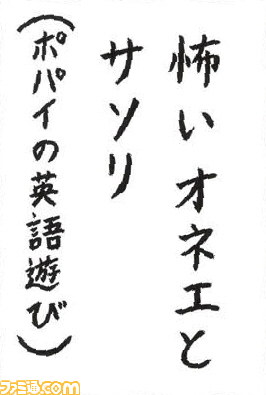 怖いオネエと
サソリ
（ポパイの英語遊び）
ファミ通.com